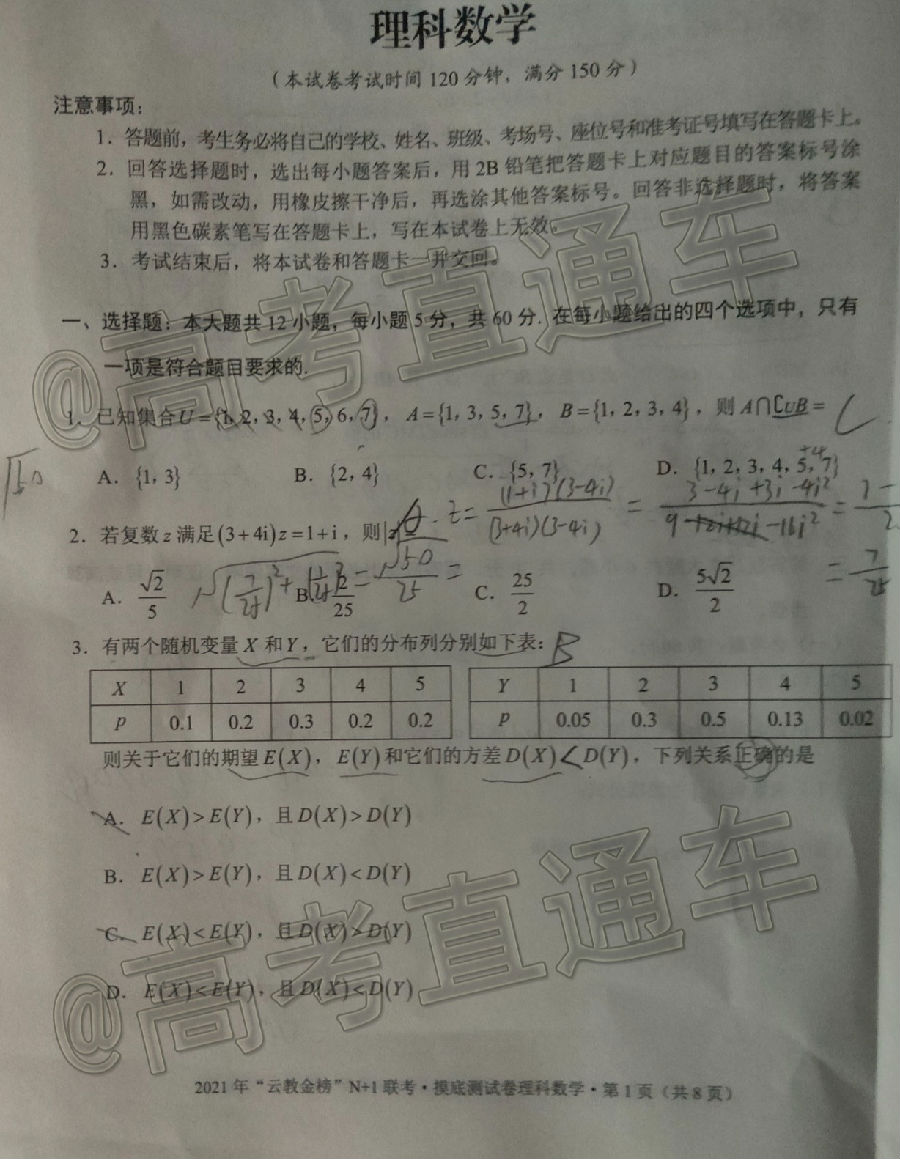 理科数学
（本试卷考试时间 120 分钟，满分 150 分）
注意事项：
1．答题前，考生务必将自己的学校、姓名、班级、考场号、座位号和准考证号填写在答题卡上。
2．回答选择题时，选出每小题答案后，用 2B 铅笔把答题卡上对应题目的答案标号涂
黑，如需改动，用橡皮擦干净后，再选涂其他答案标号。回答非选择题时，将答案
用黑色碳素笔写在答题卡上，写在本试卷上无效。
3．考试结束后，将本试卷和答题卡一并交回。
@高考直通车
一、选择题：本大题共 12 小题，每小题 5 分，共 60 分. 在每小题给出的四个选项中，只有
一项是符合题目要求的.
1．已知集合U={1, 2, 3, 4, 5, 6, 7}，A={1, 3, 5, 7}，B={1, 2, 3, 4}，则 A∩∁UB= C
A．{1, 3} B．{2, 4} C．{5, 7} D．{1, 2, 3, 4, 5, 7}
√50
2．若复数 z 满足(3+4i)z=1+i，则|z|= z= (1+i)(3-4i)/(3+4i)(3-4i) = 3-4i+3i-4i²/9-12i+12i-16i² = 7-
A．√2/5 B．√2/25 C．25/2 D．5√2/2
√(7/25)²+(1/25)² = √50/25 =
= 7/25
3．有两个随机变量 X 和 Y，它们的分布列分别如下表： B
X 1 2 3 4 5 Y 1 2 3 4 5
P 0.1 0.2 0.3 0.2 0.2 P 0.05 0.3 0.5 0.13 0.02
则关于它们的期望 E(X)，E(Y)和它们的方差 D(X)<D(Y)，下列关系正确的是
A．E(X)>E(Y)，且 D(X)>D(Y)
B．E(X)>E(Y)，且 D(X)<D(Y)
C．E(X)<E(Y)，且 D(X)>D(Y)
D．E(X)<E(Y)，且 D(X)<D(Y)
@高考直通车
2021 年“云教金榜”N+1 联考·摸底测试卷理科数学·第 1 页（共 8 页）